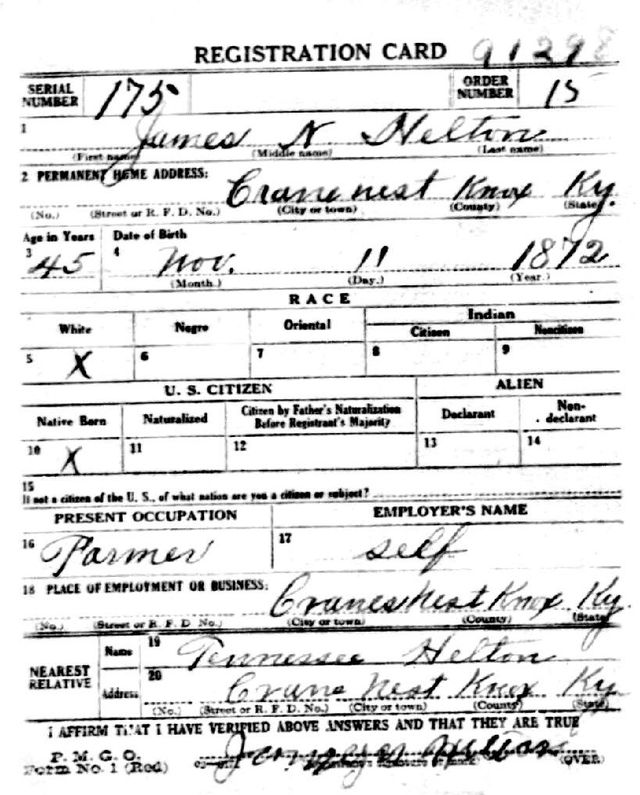 REGISTRATION CARD 9129
SERIAL NUMBER 175 ORDER NUMBER 15
1 James N. Helton
(First name) (Middle name) (Last name)
2 PERMANENT HOME ADDRESS: Crane nest Knox Ky.
(No.) (Street or R. F. D. No.) (City or town) (County) (State)
Age in Years Date of Birth
3 45 4 Nov. 11 1872
(Month.) (Day.) (Year.)
RACE
White Negro Oriental Indian
Citizen Noncitizen
5 X 6 7 8 9
U. S. CITIZEN ALIEN
Native Born Naturalized Citizen by Father's Naturalization Before Registrant's Majority Declarant Non-declarant
10 X 11 12 13 14
15
If not a citizen of the U. S., of what nation are you a citizen or subject?
PRESENT OCCUPATION EMPLOYER'S NAME
16 Farmer 17 self
18 PLACE OF EMPLOYMENT OR BUSINESS: Cranes Nest Knox Ky.
(No.) (Street or R. F. D. No.) (City or town) (County) (State)
NEAREST RELATIVE Name 19 Tennessee Helton
Address 20 Crane Nest Knox Ky
(No.) (Street or R. F. D. No.) (City or town) (County) (State)
I AFFIRM THAT I HAVE VERIFIED ABOVE ANSWERS AND THAT THEY ARE TRUE
P. M. G. O.
Form No. 1 (Red) (OVER)